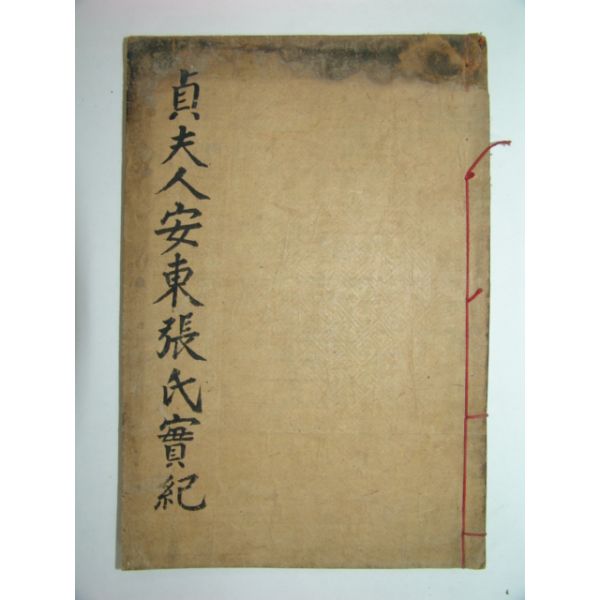 貞夫人安東張氏實紀